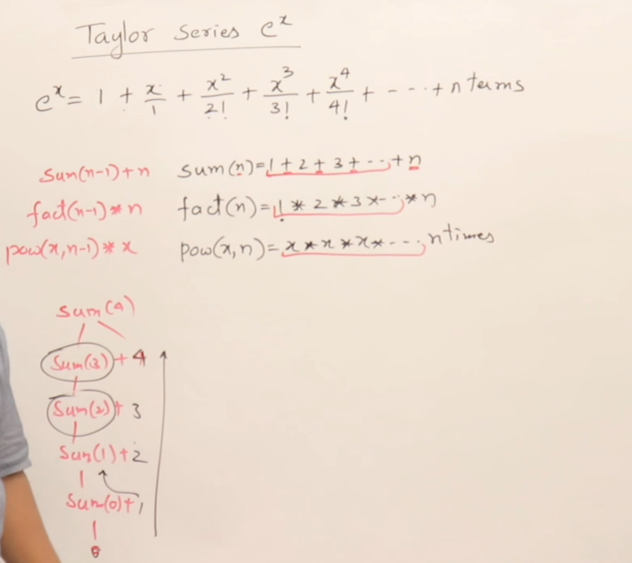 Taylor Series e^x
e^x = 1 + x/1 + x^2/2! + x^3/3! + x^4/4! + - - - - + n terms
sum(n-1)+n sum(n)=1+2+3+---+n
fact(n-1)*n fact(n)=1*2*3*---*n
pow(x,n-1)*x pow(x,n)=x*x*x*---- n times
sum(4)
sum(3)+4
sum(2)+3
sum(1)+2
sum(0)+1
0